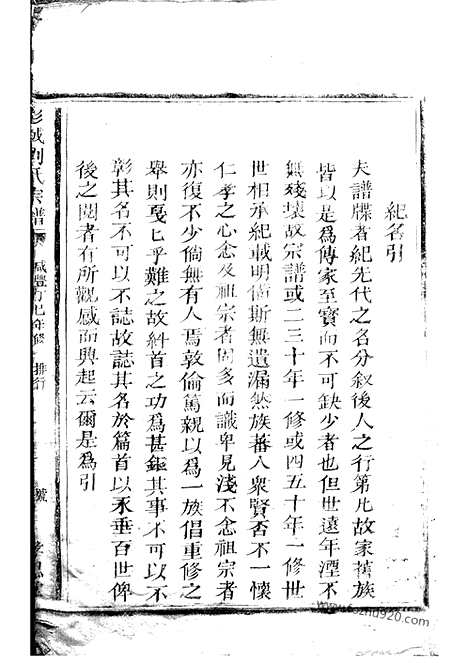 紀名引
夫譜牒者紀先代之名分叙後人之行第凡故家舊族
皆以是爲傳家至寳而不可缺少者也但世遠年湮不
無殘壊故宗譜或二三十年一修或四五十年一修世
世相承紀載明備斯無遺漏然族蕃人衆賢否不一懷
仁孝之心念及祖宗者固多而識卑見淺不念祖宗者
亦復不少倘無有人焉敦倫篤親以爲一族倡重修之
舉則戛乚乎難之故糾首之功爲甚鉅其事不可以不
彰其名不可以不誌故誌其名於篇首以永垂百世俾
後之閲者有所觀感而興起云爾是爲引
彭城劉氏宗譜
咸豐丁巳年修
排行
號